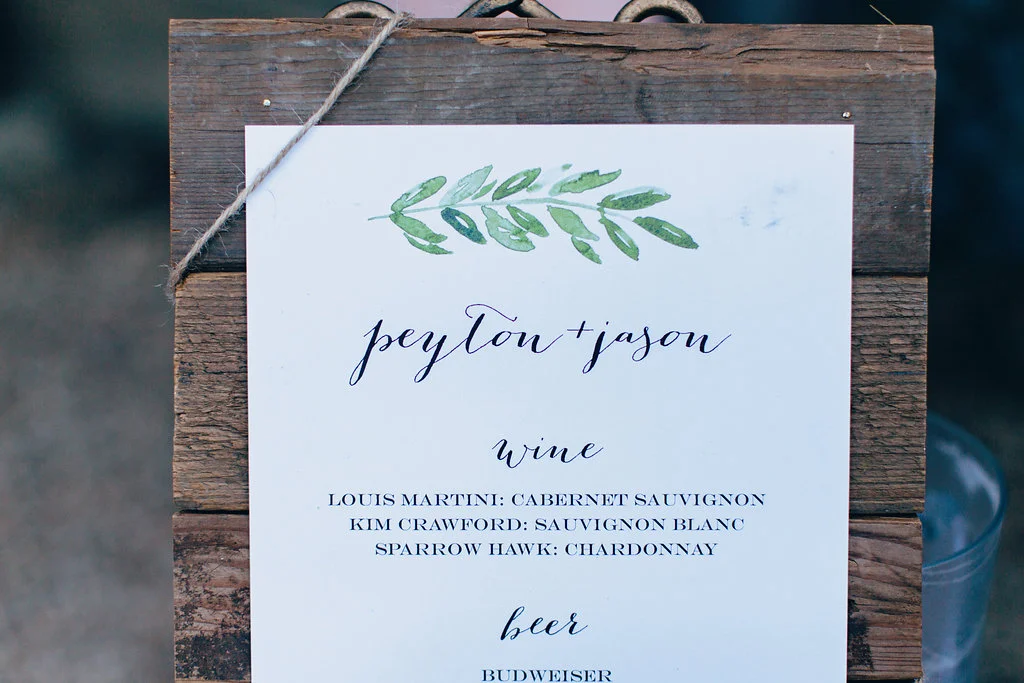 peyton + jason
wine
LOUIS MARTINI: CABERNET SAUVIGNON
KIM CRAWFORD: SAUVIGNON BLANC
SPARROW HAWK: CHARDONNAY
beer
BUDWEISER